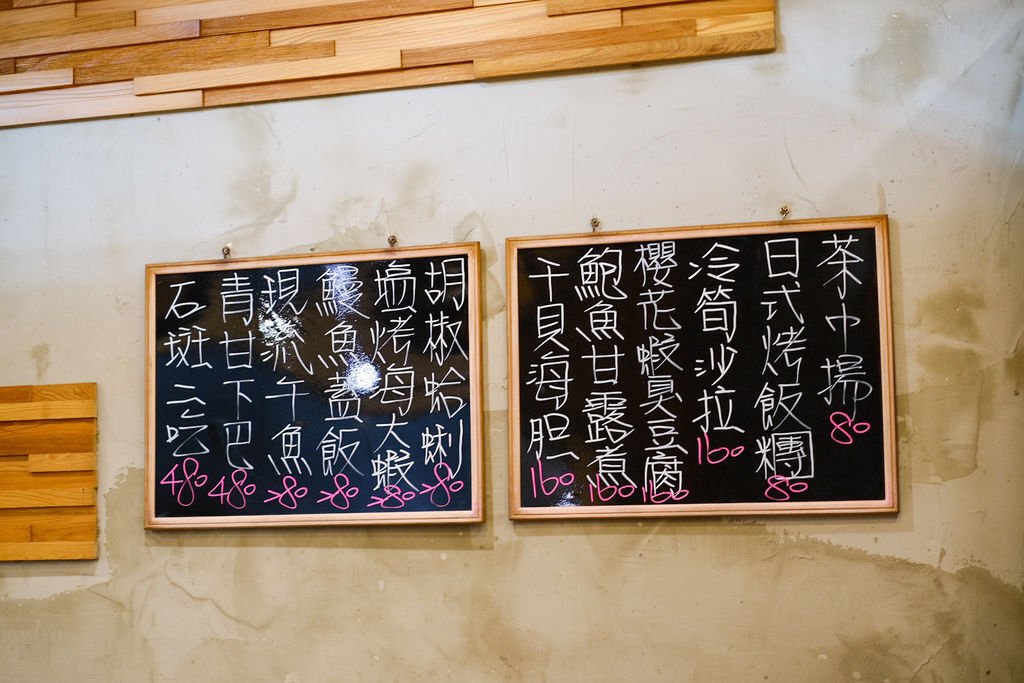 茶巾場 80
日式烤飯糰 80
冷筍沙拉 160
櫻花蝦臭豆腐 160
鮑魚甘露煮 160
干貝海胆 160
胡椒蛤蜊 280
塩烤海大蝦 280
鰻魚蓋飯 280
現流午魚 280
青甘下巴 480
石斑三吃 480